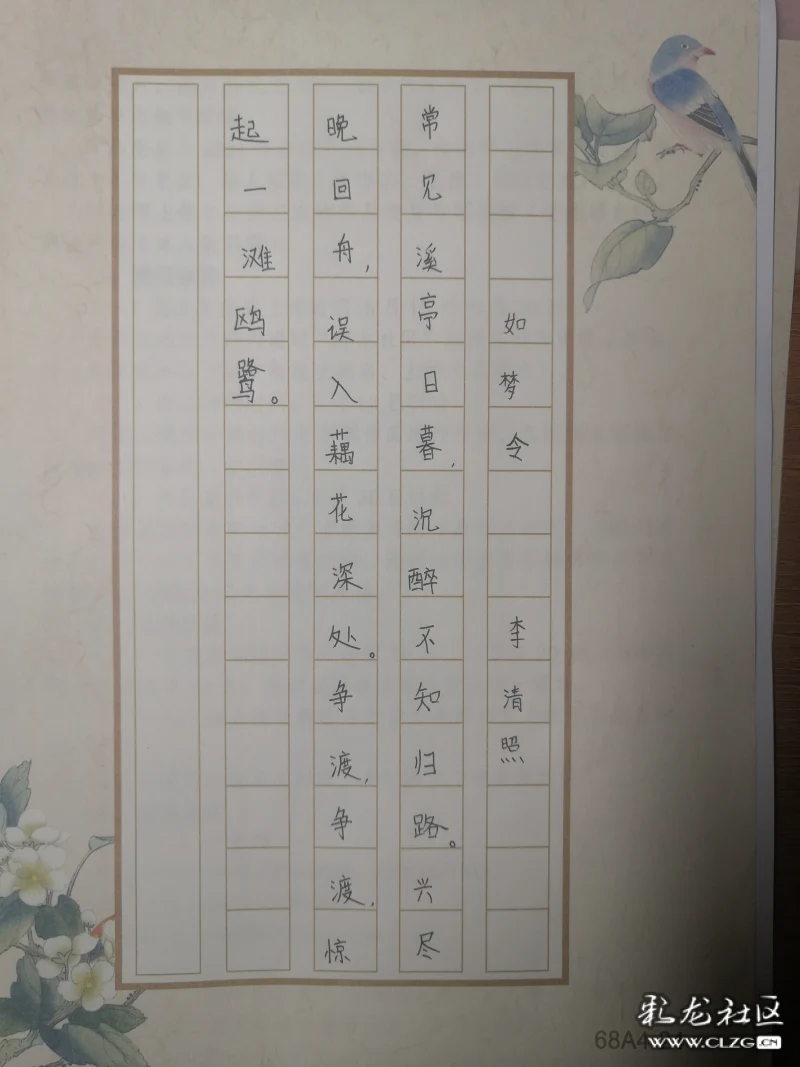 如梦令 李清照
常见溪亭日暮,沉醉不知归路。兴尽
晚回舟,误入藕花深处。争渡,争渡,惊
起一滩鸥鹭。
彩龙社区
www.CLZG.CN